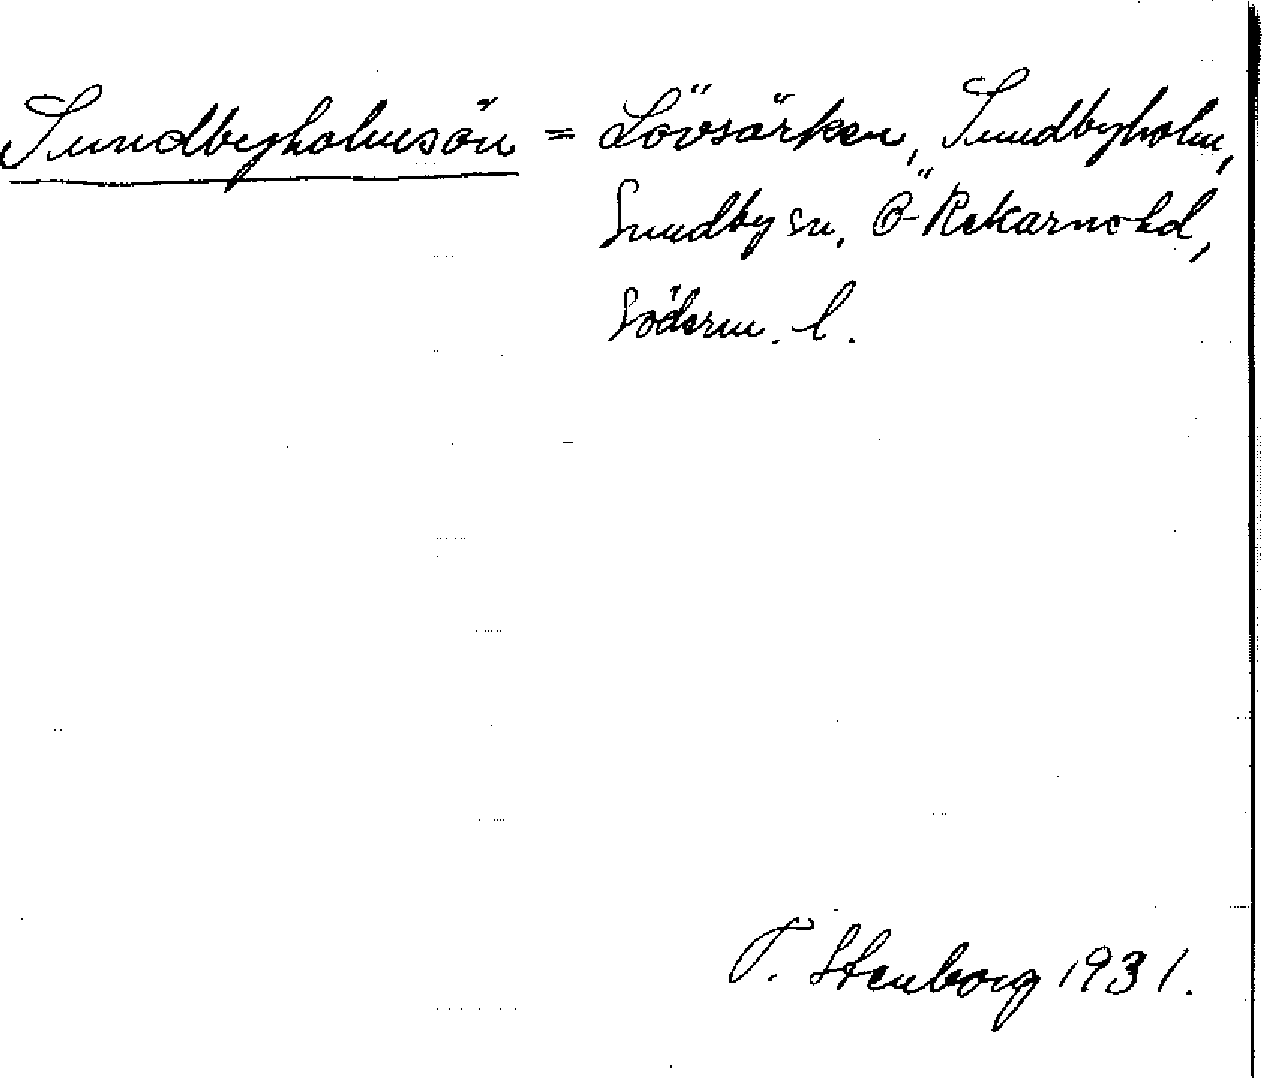 Sundbyholmsön = Lövsärken, Sundbyholm,
Sundby sn, Ö-Rekarne hd,
Söderm. l.
T. Stenborg 1931.